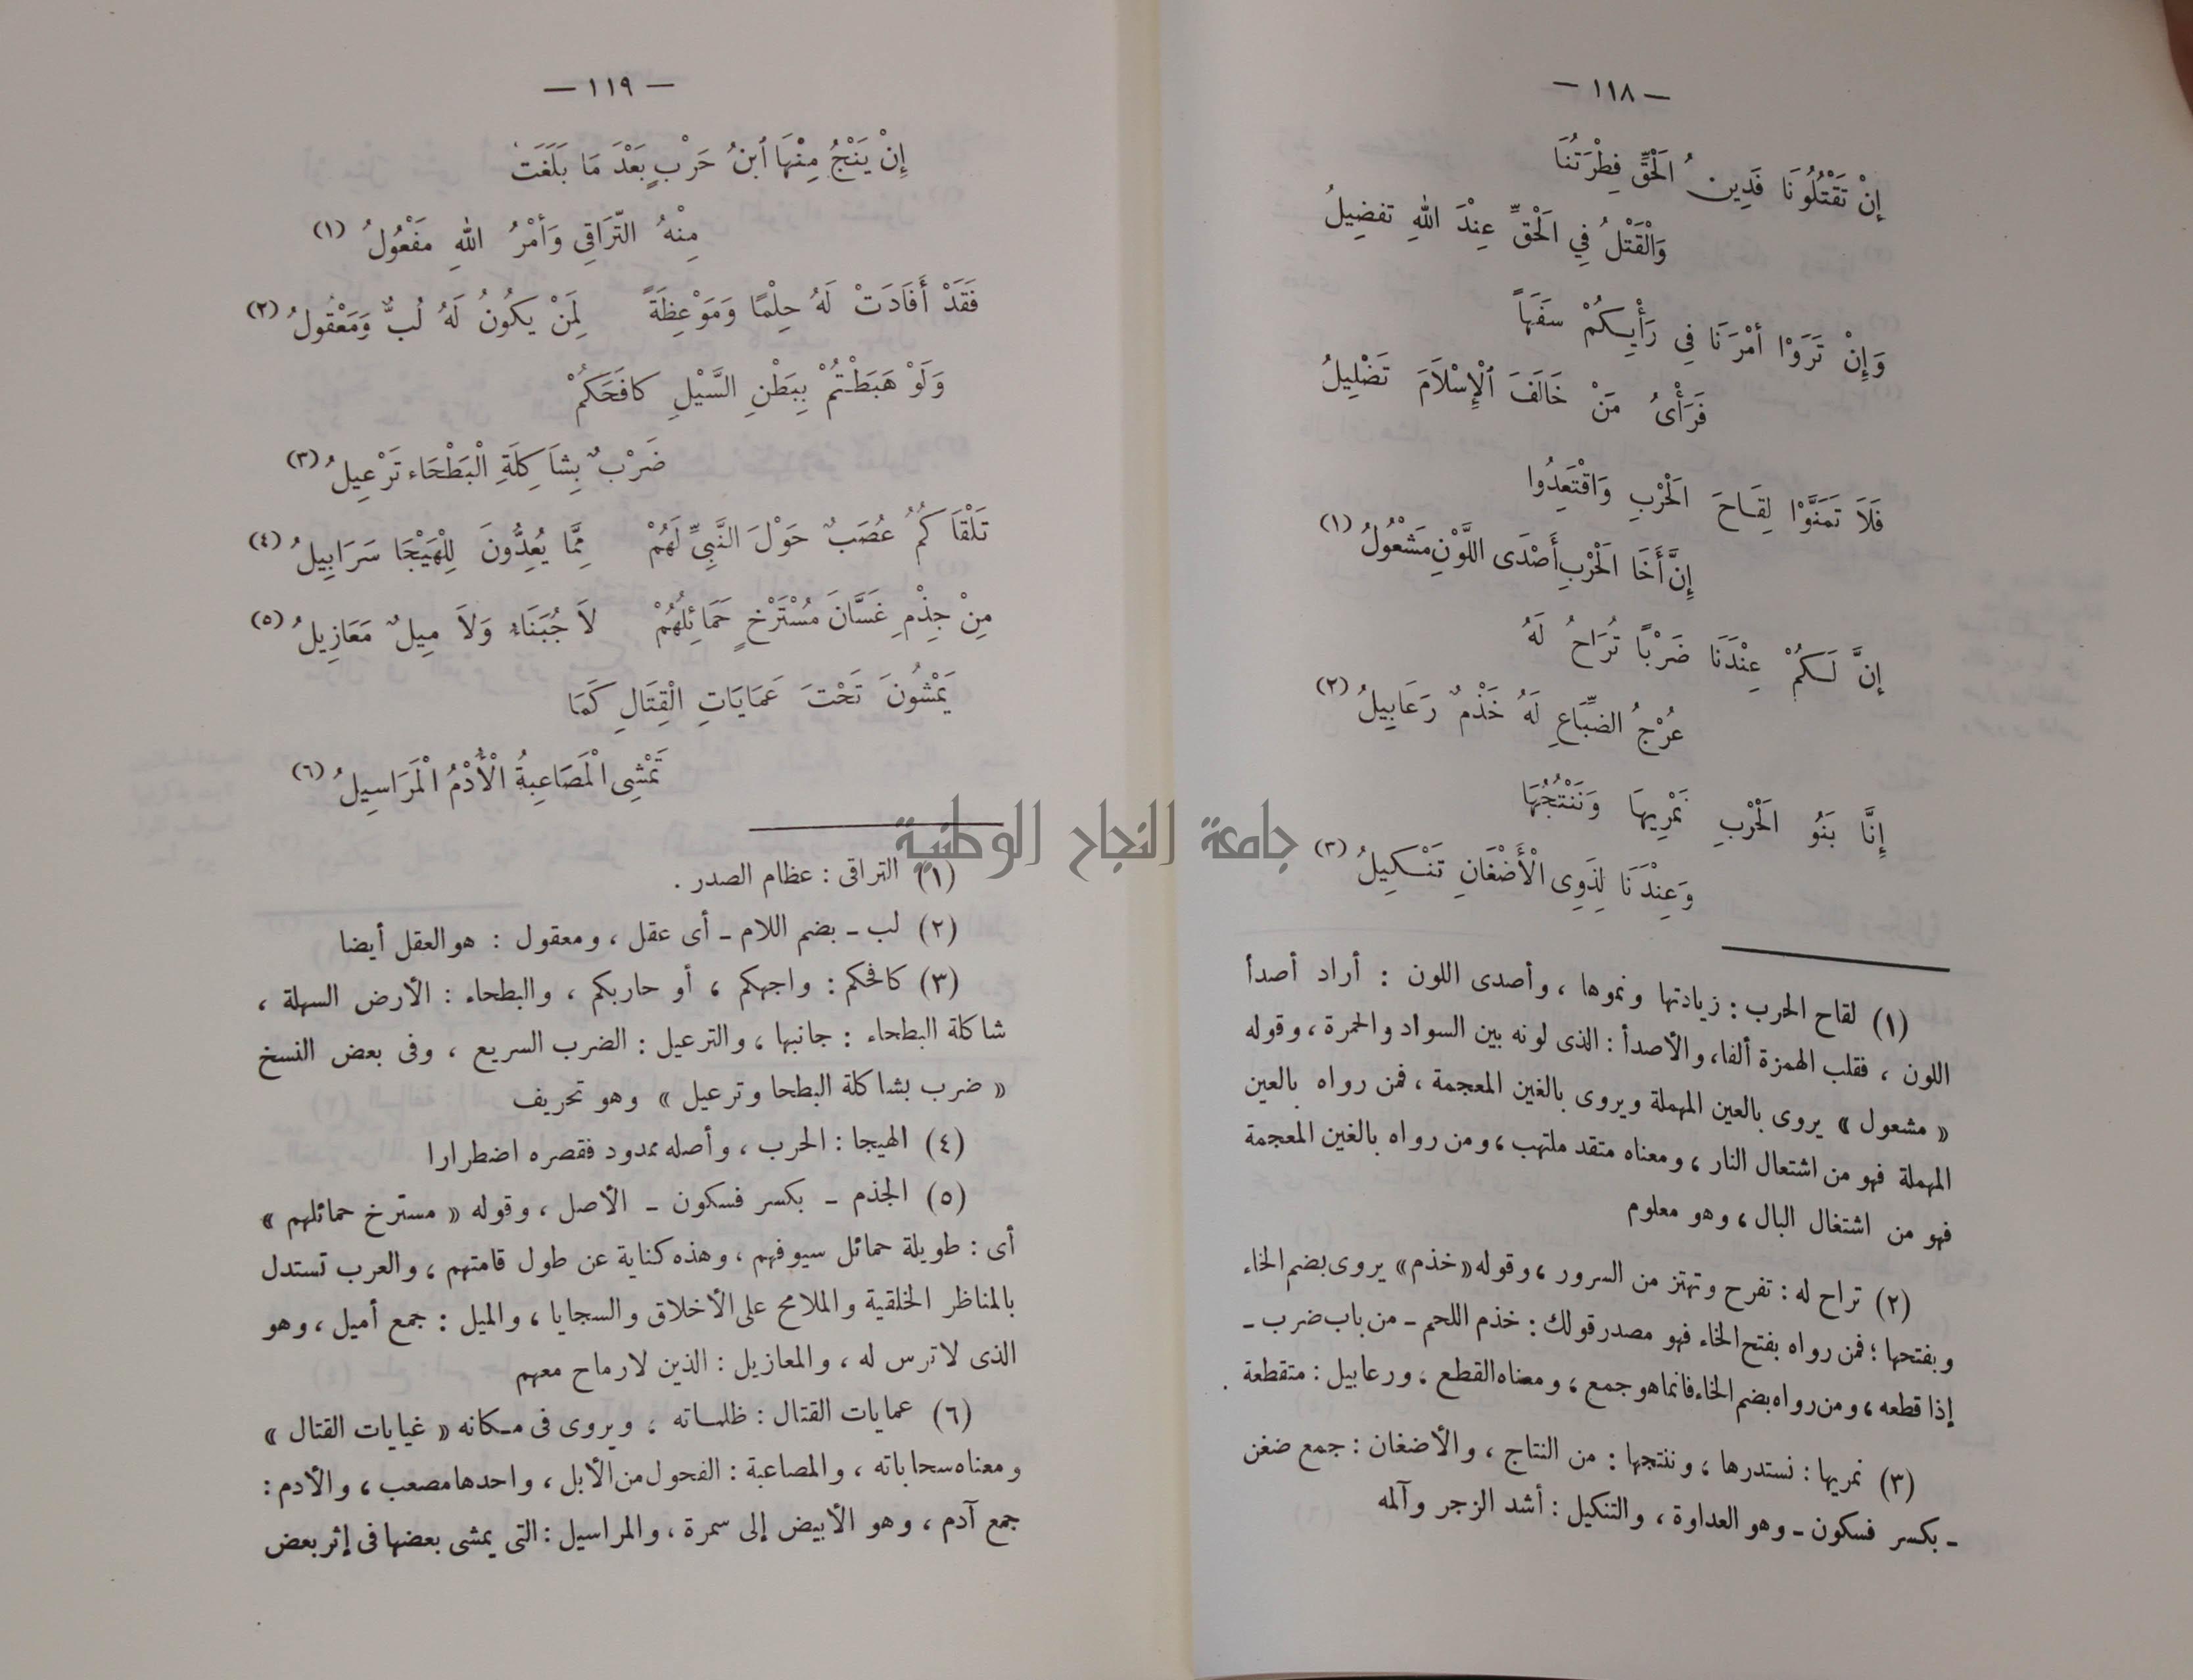 — ١١٨ —
إِنْ تَقْتُلُونَا فَدِينُ الْحَقِّ فِطْرَتُنَا
وَالْقَتْلُ فِي الْحَقِّ عِنْدَ اللهِ تفضِيلُ
وَإِنْ تَرَوْا أمْرَنَا فِي رَأْيِكُمْ سَفَهَاً
فَرَأْىُ مَنْ خَالَفَ الْإِسْلَامَ تَضْلِيلُ
فَلَا تَمَنَّوْا لِقَاحَ الْحَرْبِ وَاقْتَعِدُوا
إِنَّ أَخَا الْحَرْبِ أَصْدَى اللَّوْنِ مَشْعُولُ (١)
إِنَّ لَكُمْ عِنْدَنَا ضَرْبًا تُرَاحُ لَهُ
عُرْجُ الضِّبَاعِ لَهُ خَذْمٌ رَعَابِيلُ (٢)
إِنَّا بَنُو الْحَرْبِ نَمْرِيهَا وَنَنْتُجُهَا
وَعِنْدَنَا لِذَوِى الْأَضْغَانِ تَنْكِيلُ (٣)
(١) لقاح الحرب : زيادتها ونموها ، وأصدى اللون : أراد أصدأ
اللون ، فقلب الهمزة ألفا، والأصدأ : الذى لونه بين السواد والحمرة ، وقوله
« مشعول » يروى بالعين المهملة ويروى بالغين المعجمة ، فمن رواه بالعين
المهملة فهو من اشتعال النار ، ومعناه متقد ملتهب ، ومن رواه بالغين المعجمة
فهو من اشتغال البال ، وهو معلوم
(٢) تراح له : تفرح وتهتز من السرور ، وقوله « خذم » يروى بضم الخاء
وبفتحها ؛ فمن رواه بفتح الخاء فهو مصدر قولك : خذم اللحم ـ من باب ضرب ـ
إذا قطعه ، ومن رواه بضم الخاء فانما هو جمع ، ومعناه القطع ، ورعابيل : متقطعة .
(٣) نمريها : نستدرها ، وننتجها : من النتاج ، والأضغان : جمع ضغن
ـ بكسر فسكون ـ وهو العداوة ، والتنكيل : أشد الزجر وآلمه
— ١١٩ —
إِنْ يَنْجُ مِنْهَا ٱبنُ حَرْبٍ بَعْدَ مَا بَلَغَتْ
مِنْهُ التَّرَاقِي وَأمْرُ اللهِ مَفْعُولُ (١)
فَقَدْ أَفَادَتْ لَهُ حِلْمًا وَمَوْعِظَةً لِمَنْ يَكُونُ لَهُ لُبٌّ وَمَعْقُولُ (٢)
وَلَوْ هَبَطْتُمْ بِبَطْنِ السَّيْلِ كافَحَكُمْ
ضَرْبٌ بِشَاكِلَةِ الْبَطْحَاء تَرْعِيلُ (٣)
تَلْقَاكُمُ عُصَبٌ حَوْلَ النَّبِيِّ لَهُمْ مِمَّا يُعِدُّونَ لِلْهَيْجَا سَرَابِيلُ (٤)
مِنْ جِذْمِ غَسَّانَ مُسْتَرْخٍ حَمَائِلُهُمْ لَا جُبَنَاءُ وَلَا مِيلٌ مَعَازِيلُ (٥)
يَمْشُونَ تَحْتَ عَمَايَاتِ الْقِتَالِ كَمَا
تَمْشِى الْمَصَاعِبةُ الْأُدْمُ الْمَرَاسِيلُ (٦)
(١) التراقى : عظام الصدر .
(٢) لب ـ بضم اللام ـ أى عقل ، ومعقول : هو العقل أيضا
(٣) كافحكم : واجهكم ، أو حاربكم ، والبطحاء : الأرض السهلة ،
شاكلة البطحاء : جانبها ، والترعيل : الضرب السريع ، وفى بعض النسخ
« ضرب بشاكلة البطحا وترعيل » وهو تحريف
(٤) الهيجا : الحرب ، وأصله ممدود فقصره اضطرارا
(٥) الجذم ـ بكسر فسكون ـ الأصل ، وقوله « مسترخ حمائلهم »
أى : طويلة حمائل سيوفهم ، وهذه كناية عن طول قامتهم ، والعرب تستدل
بالمناظر الخلقية والملامح على الأخلاق والسجايا ، والميل : جمع أميل ، وهو
الذى لا ترس له ، والمعازيل : الذين لا رماح معهم
(٦) عمايات القتال : ظلماته ، ويروى فى مكانه « غيايات القتال »
ومعناه سحاباته ، والمصاعبة : الفحول من الأبل ، واحدها مصعب ، والأدم :
جمع آدم ، وهو الأبيض إلى سمرة ، والمراسيل : التى يمشى بعضها فى إثر بعض
جامعة النجاح الوطنية